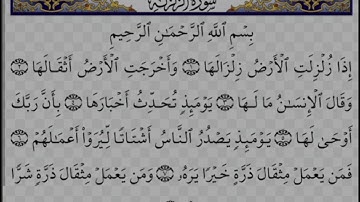 سورة الزلزلة
بِسْمِ اللَّهِ الرَّحْمَٰنِ الرَّحِيمِ
إِذَا زُلْزِلَتِ الْأَرْضُ زِلْزَالَهَا ١ وَأَخْرَجَتِ الْأَرْضُ أَثْقَالَهَا ٢
وَقَالَ الْإِنسَانُ مَا لَهَا ٣ يَوْمَئِذٍ تُحَدِّثُ أَخْبَارَهَا ٤ بِأَنَّ رَبَّكَ
أَوْحَىٰ لَهَا ٥ يَوْمَئِذٍ يَصْدُرُ النَّاسُ أَشْتَاتًا لِّيُرَوْا أَعْمَالَهُمْ ٦
فَمَن يَعْمَلْ مِثْقَالَ ذَرَّةٍ خَيْرًا يَرَهُ ٧ وَمَن يَعْمَلْ مِثْقَالَ ذَرَّةٍ شَرًّا